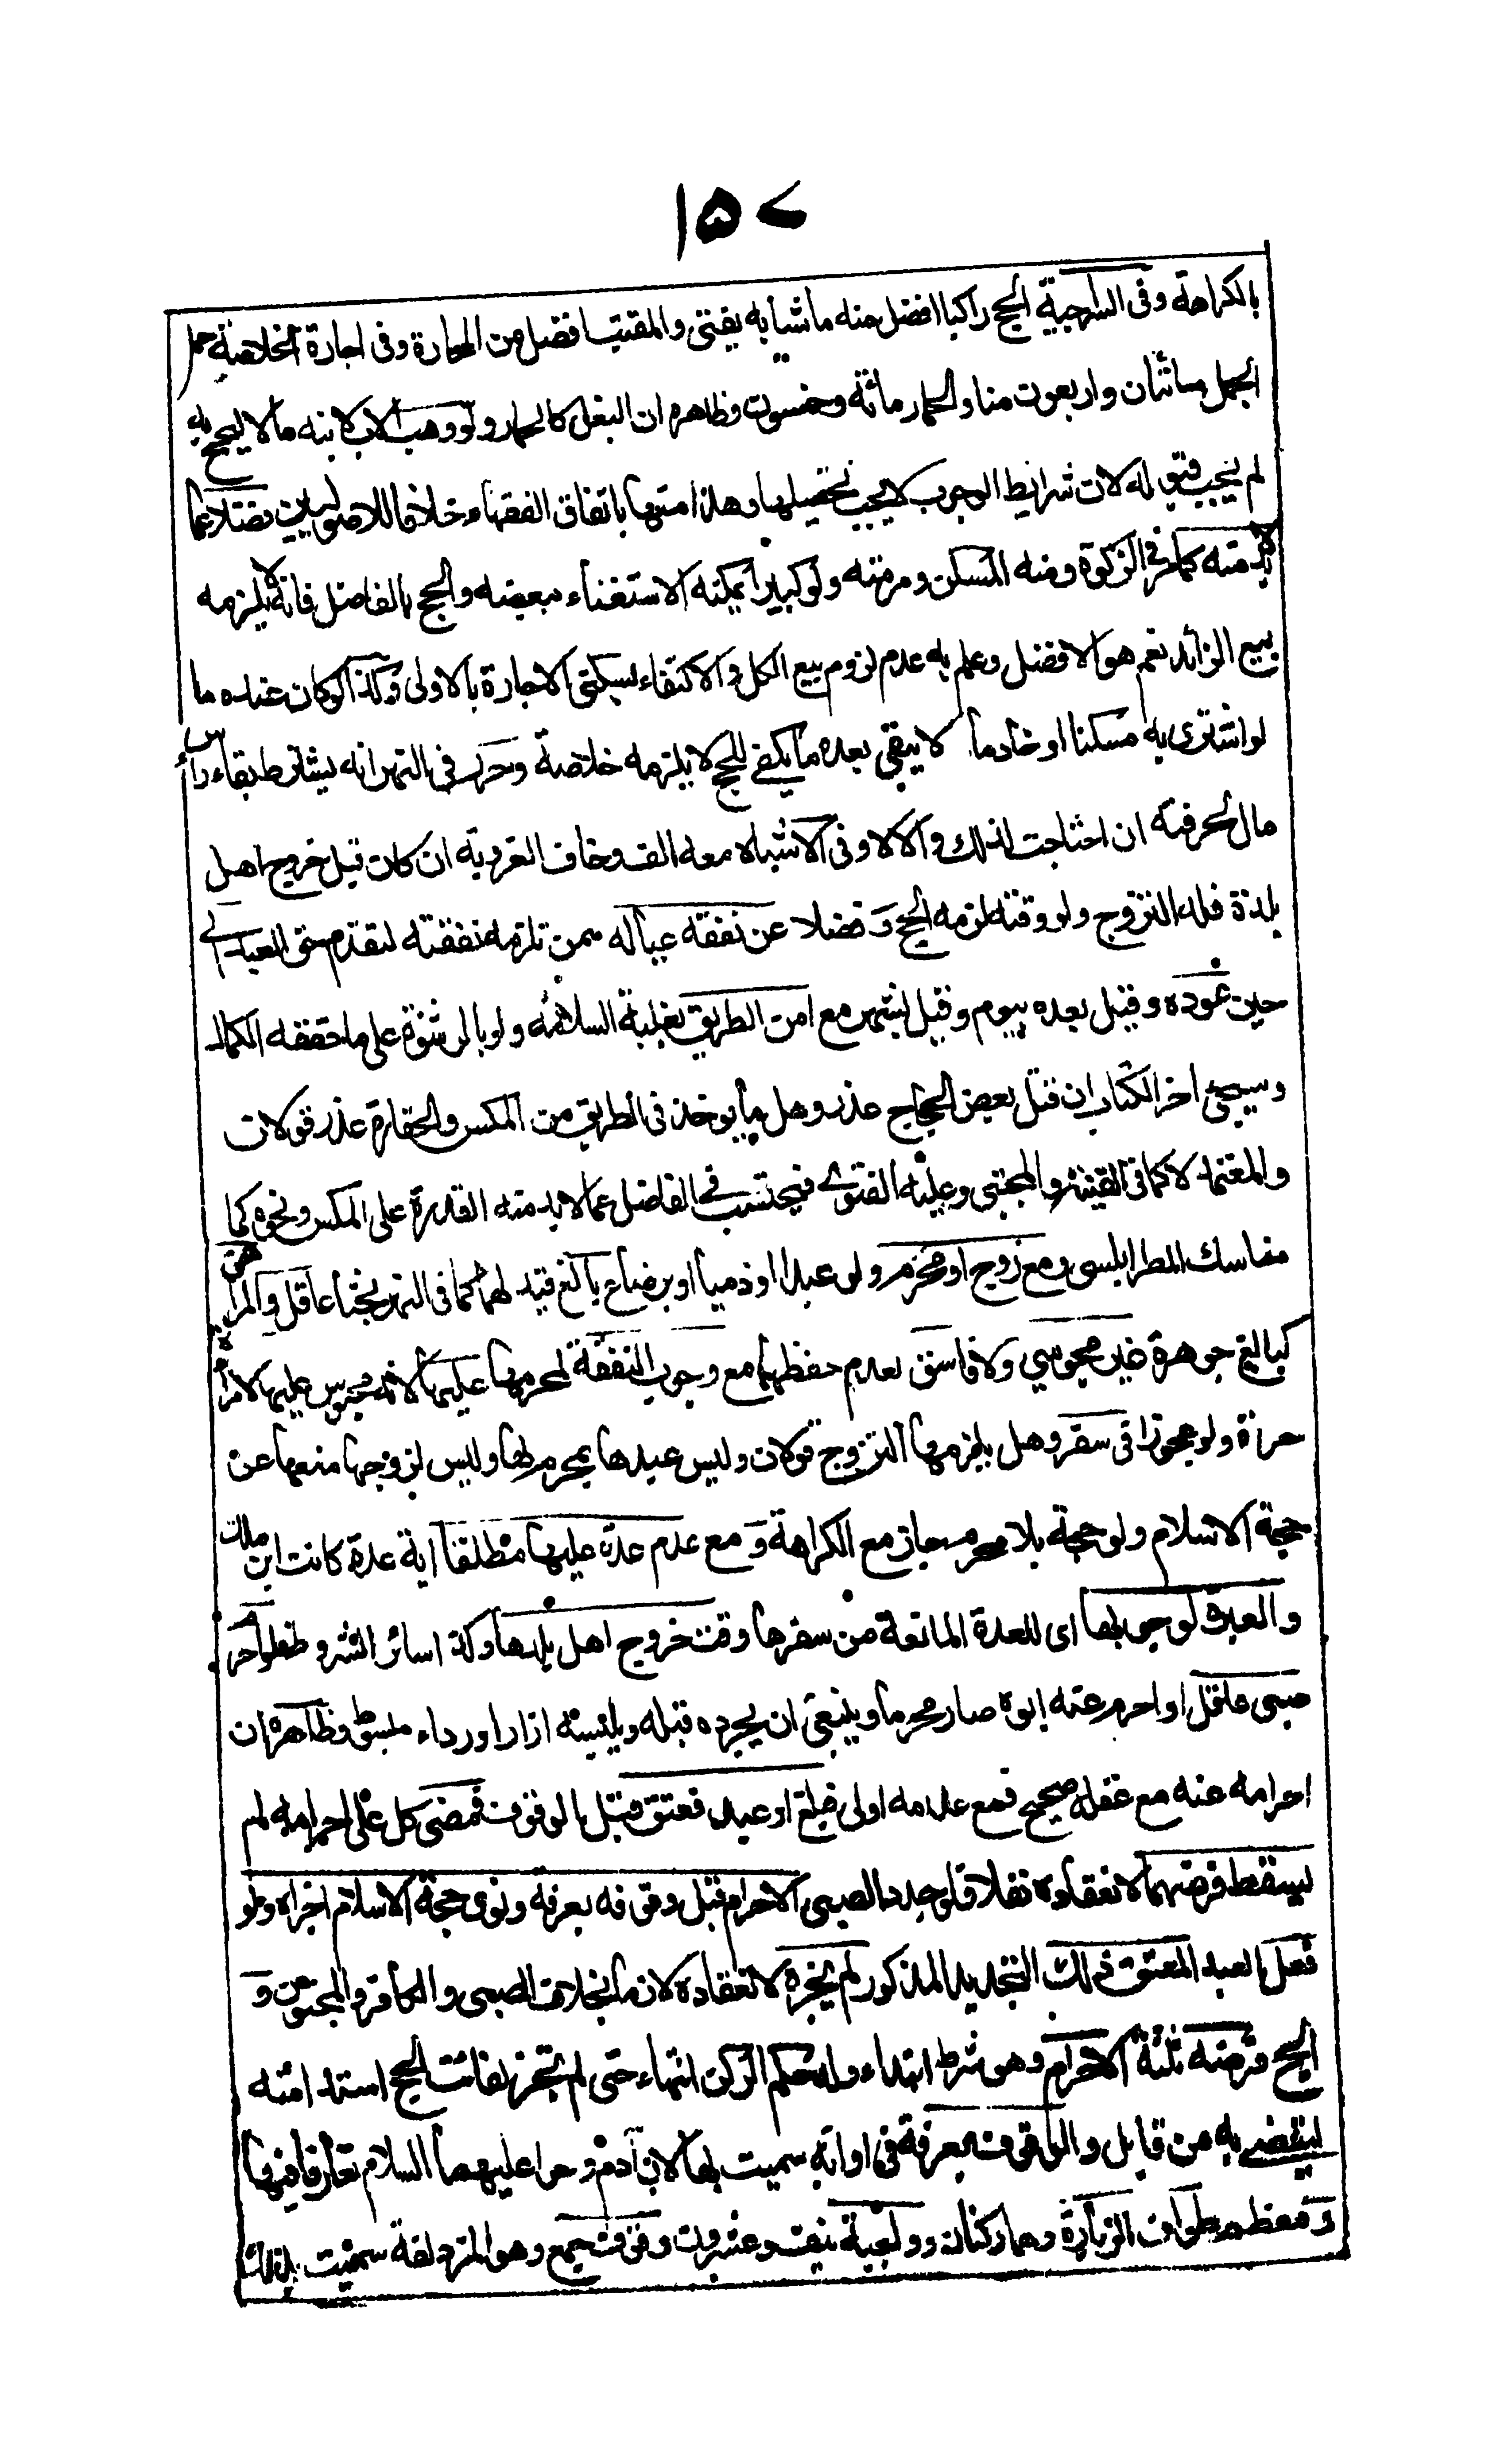 ١٥٧
بالكراهة وفى السراجية الحج راكبا افضل منه ماشيا به يفتى والمقتب افضل من المحارة وفى اجارة الخلاصة حمل
الجمل مائتان واربعون منا والحمار مائة وخمسون وظاهره ان البغل كالحمار ولو وهب الاب لابنه مالا يحج به
لم يجب قبوله لان شرائط الوجوب لا يجب تحصيلها وهذا منها باتفاق الفقهاء خلافا للاصوليين فضلا عما
لابد منه كما مر فى الزكوة ومنه المسكن ومرمته ولو كبيرا يمكنه الاستغناء ببعضه والحج بالفاضل فانه لا يلزمه
بيع الزائد نعم هو الافضل وعلم به عدم لزوم بيع الكل والاكتفاء بسكنى الاجارة بالاولى وكذا لو كان عنده ما
لو اشترى به مسكنا او خادما لا يبقى بعده ما يكفى للحج لا يلزمه خلاصة وحرر فى النهر انه يشترط بقاء رأس
مال لحرفته ان احتاجت لذلك والا لا وفى الاشباه معه الف وخاف العزوبة ان كان قبل خروج اهل
بلده فله التزوج ولو وقته لزمه الحج و فضلا عن نفقة عياله ممن تلزمه نفقته لتقدم حق العبد الى
حين عوده وقيل بعده بيوم وقيل بشهر مع امن الطريق بغلبة السلامة ولو بالرشوة على ما حققه الكمال
وسيجئ اخر الكتاب ان قتل بعض الحجاج عذر وهل ما يوخذ فى الطريق من المكس والخفارة عذر قولان
والمعتمد لا كما فى القنية والمجتبى وعليه الفتوى فيحتسب فى الفاضل عما لابد منه القدرة على المكس ونحوه كما فى
مناسك الطرابلسى ومع زوج او محرم ولو عبدا او ذميا او برضاع بالغ قيد لهما كما فى النهر بحثا عاقل والمراهق
كبالغ جوهرة غير مجوسي ولا فاسق لعدم حفظهما مع وجوب النفقة لمحرمها عليها لانه محبوس عليها لامرأة
حرة ولو عجوزا فى سفر وهل يلزمها التزوج قولان وليس عبدها بمحرم لها وليس لزوجها منعها عن
حجة الاسلام ولو حجة بلا محرم جاز مع الكراهة و مع عدم عدة عليها مطلقا اية عدة كانت ابن ملك
والعبرة لوجوبها اى للعدة المانعة من سفرها وقت خروج اهل بلدها وكذا سائر الشروط فلو احرم
صبى عاقل او احرم عنه ابوه صار محرما وينبغى ان يجرده قبله ويلبسه ازارا ورداء مبسوط وظاهره ان
احرامه عنه مع عقله صحيح فمع عدمه اولى فبلغ او عبد فعتق قبل الوقوف فمضى كل على احرامه لم
يسقط فرضهما لانعقاده نفلا فلو جدد الصبى الاحرام قبل وقوفه بعرفة ونوى حجة الاسلام اجزاه ولو
فعل العبد المعتق ذلك التجديد المذكور لم يجزه لانعقاده لازما بخلاف الصبى والكافر والمجنون و
الحج فرضه ثلثة الاحرام وهو شرط ابتداء وله حكم الركن انتهاء حتى لم يجز لفائت الحج استدامته
ليقضى به من قابل والوقوف بعرفة فى اوانه سميت بها لان آدم وحوا عليهما السلام تعارفا فيها
و معظم طواف الزيارة وهما ركنان وواجبه نيف وعشرون وقوف جمع وهو المزدلفة سميت بذلك